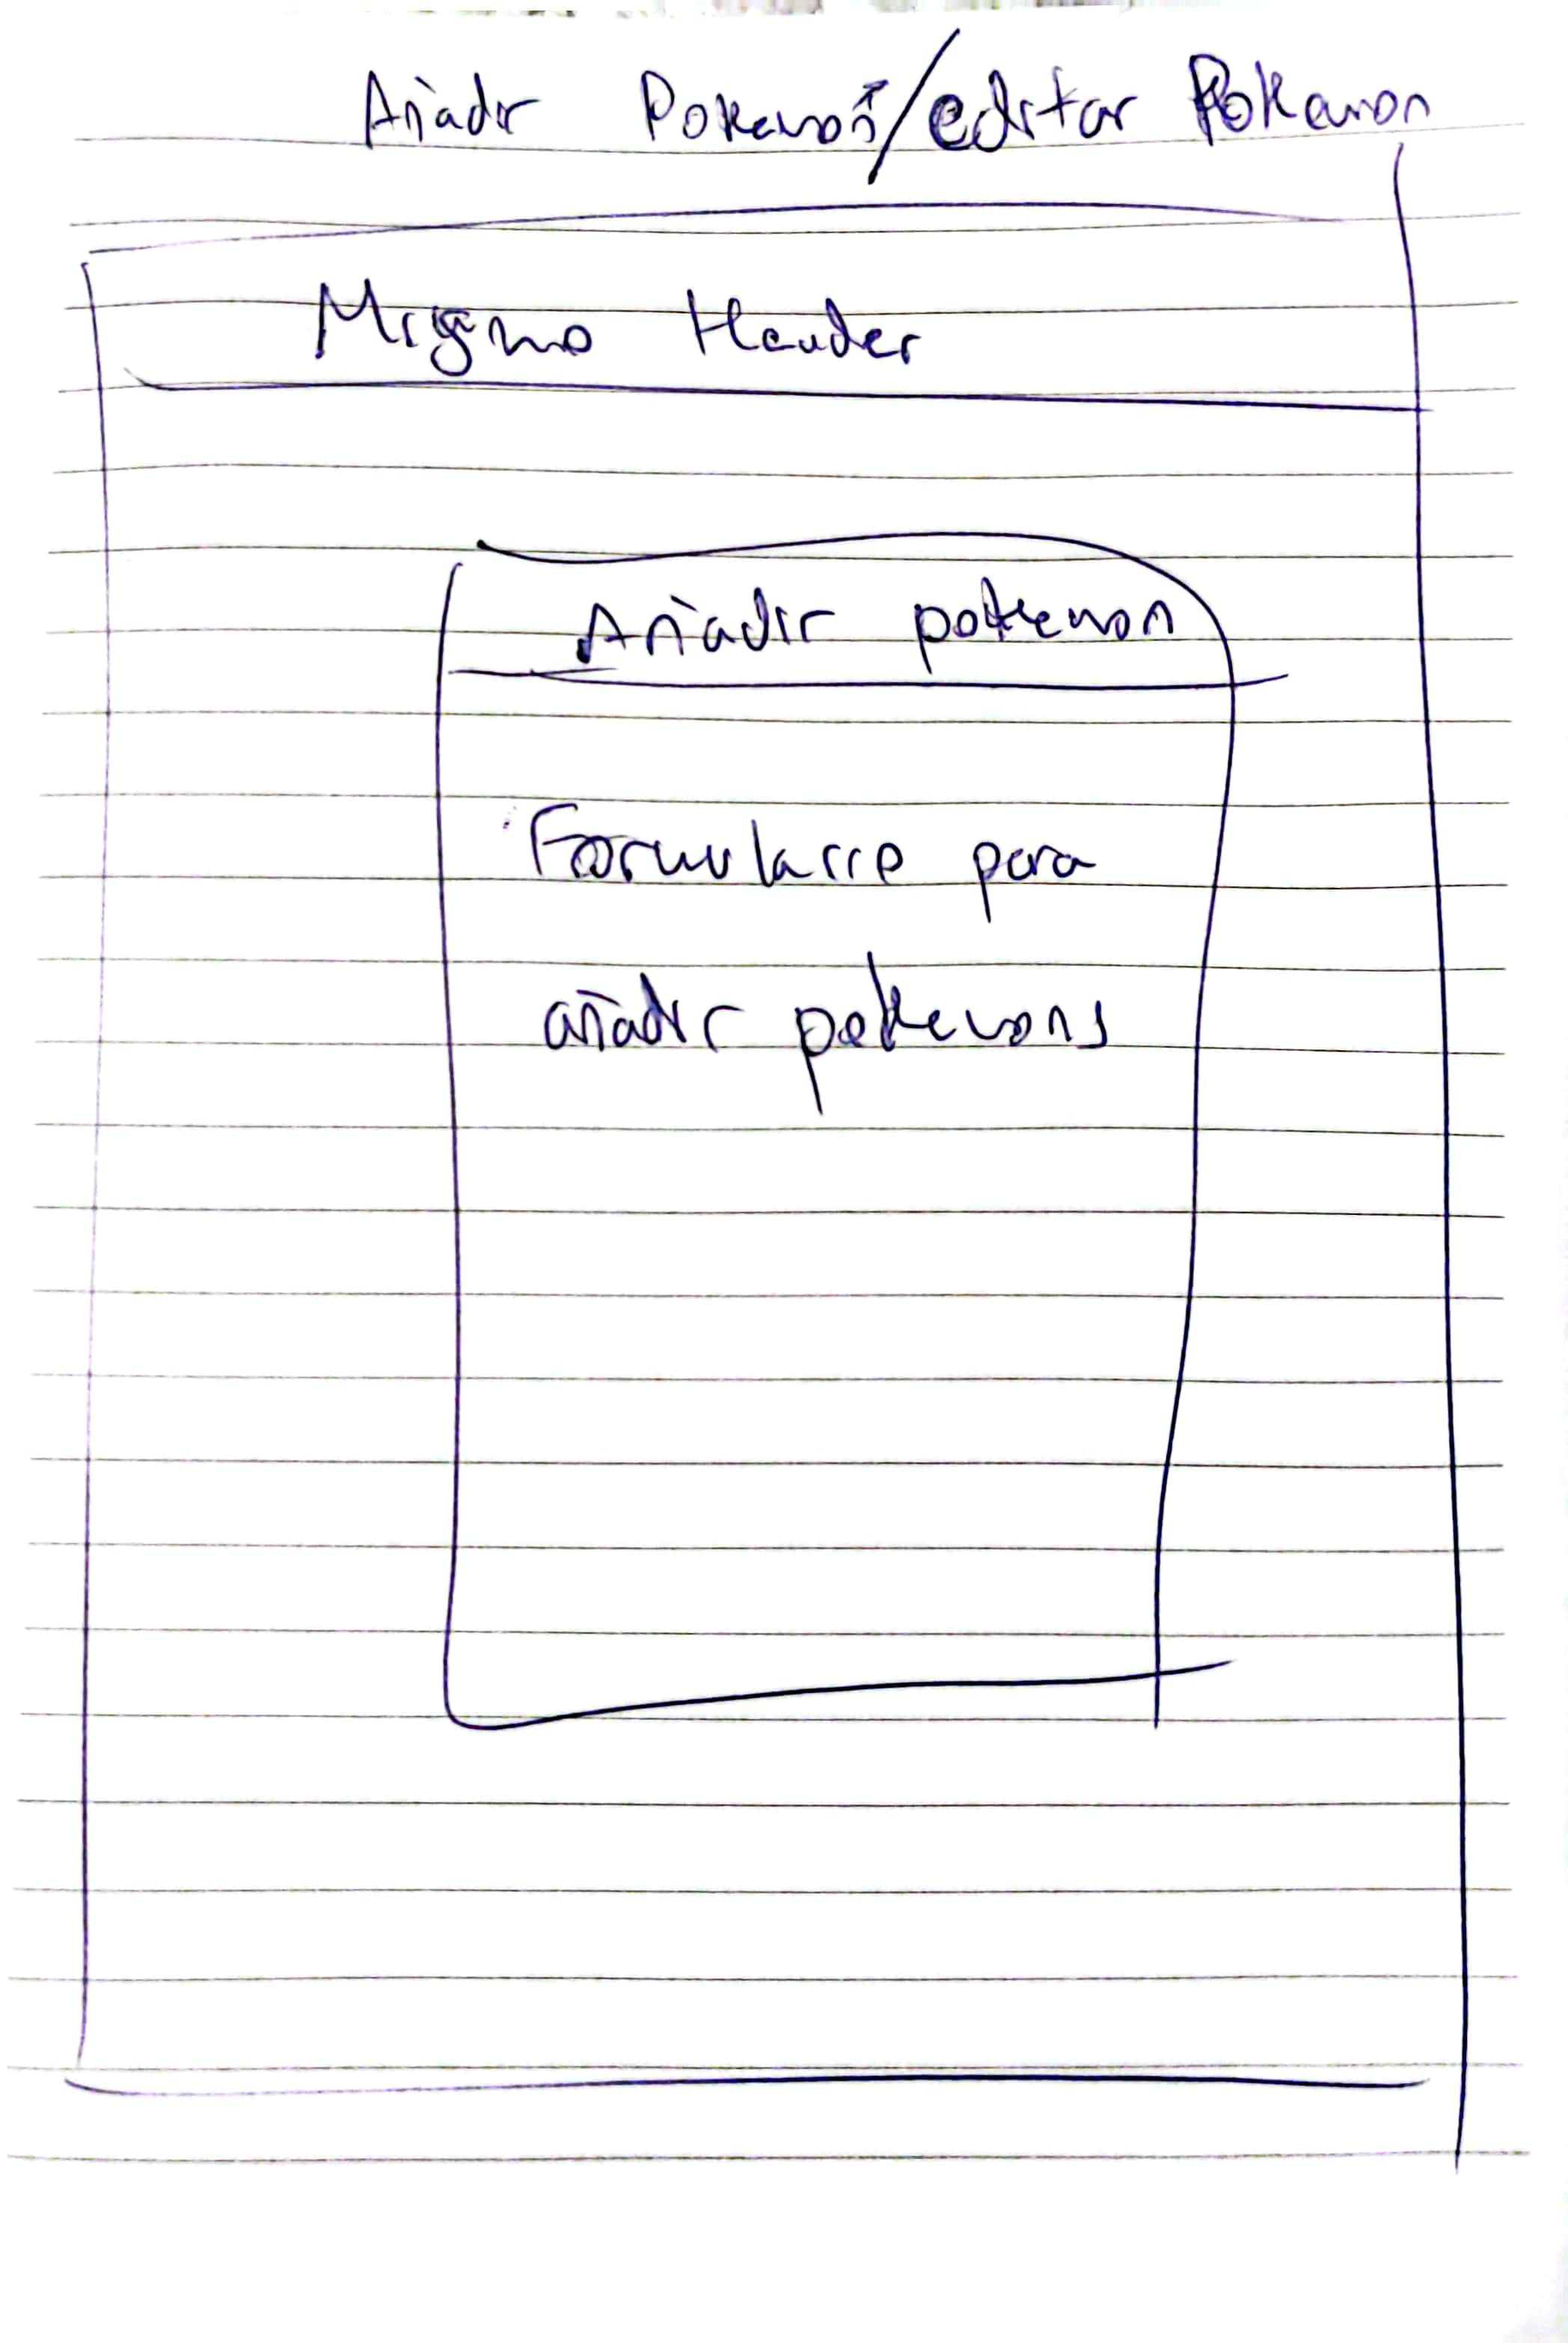 Añadir Pokemon/editar Pokemon
Mismo Header
Añadir pokemon
Formulario para
añadir pokemons